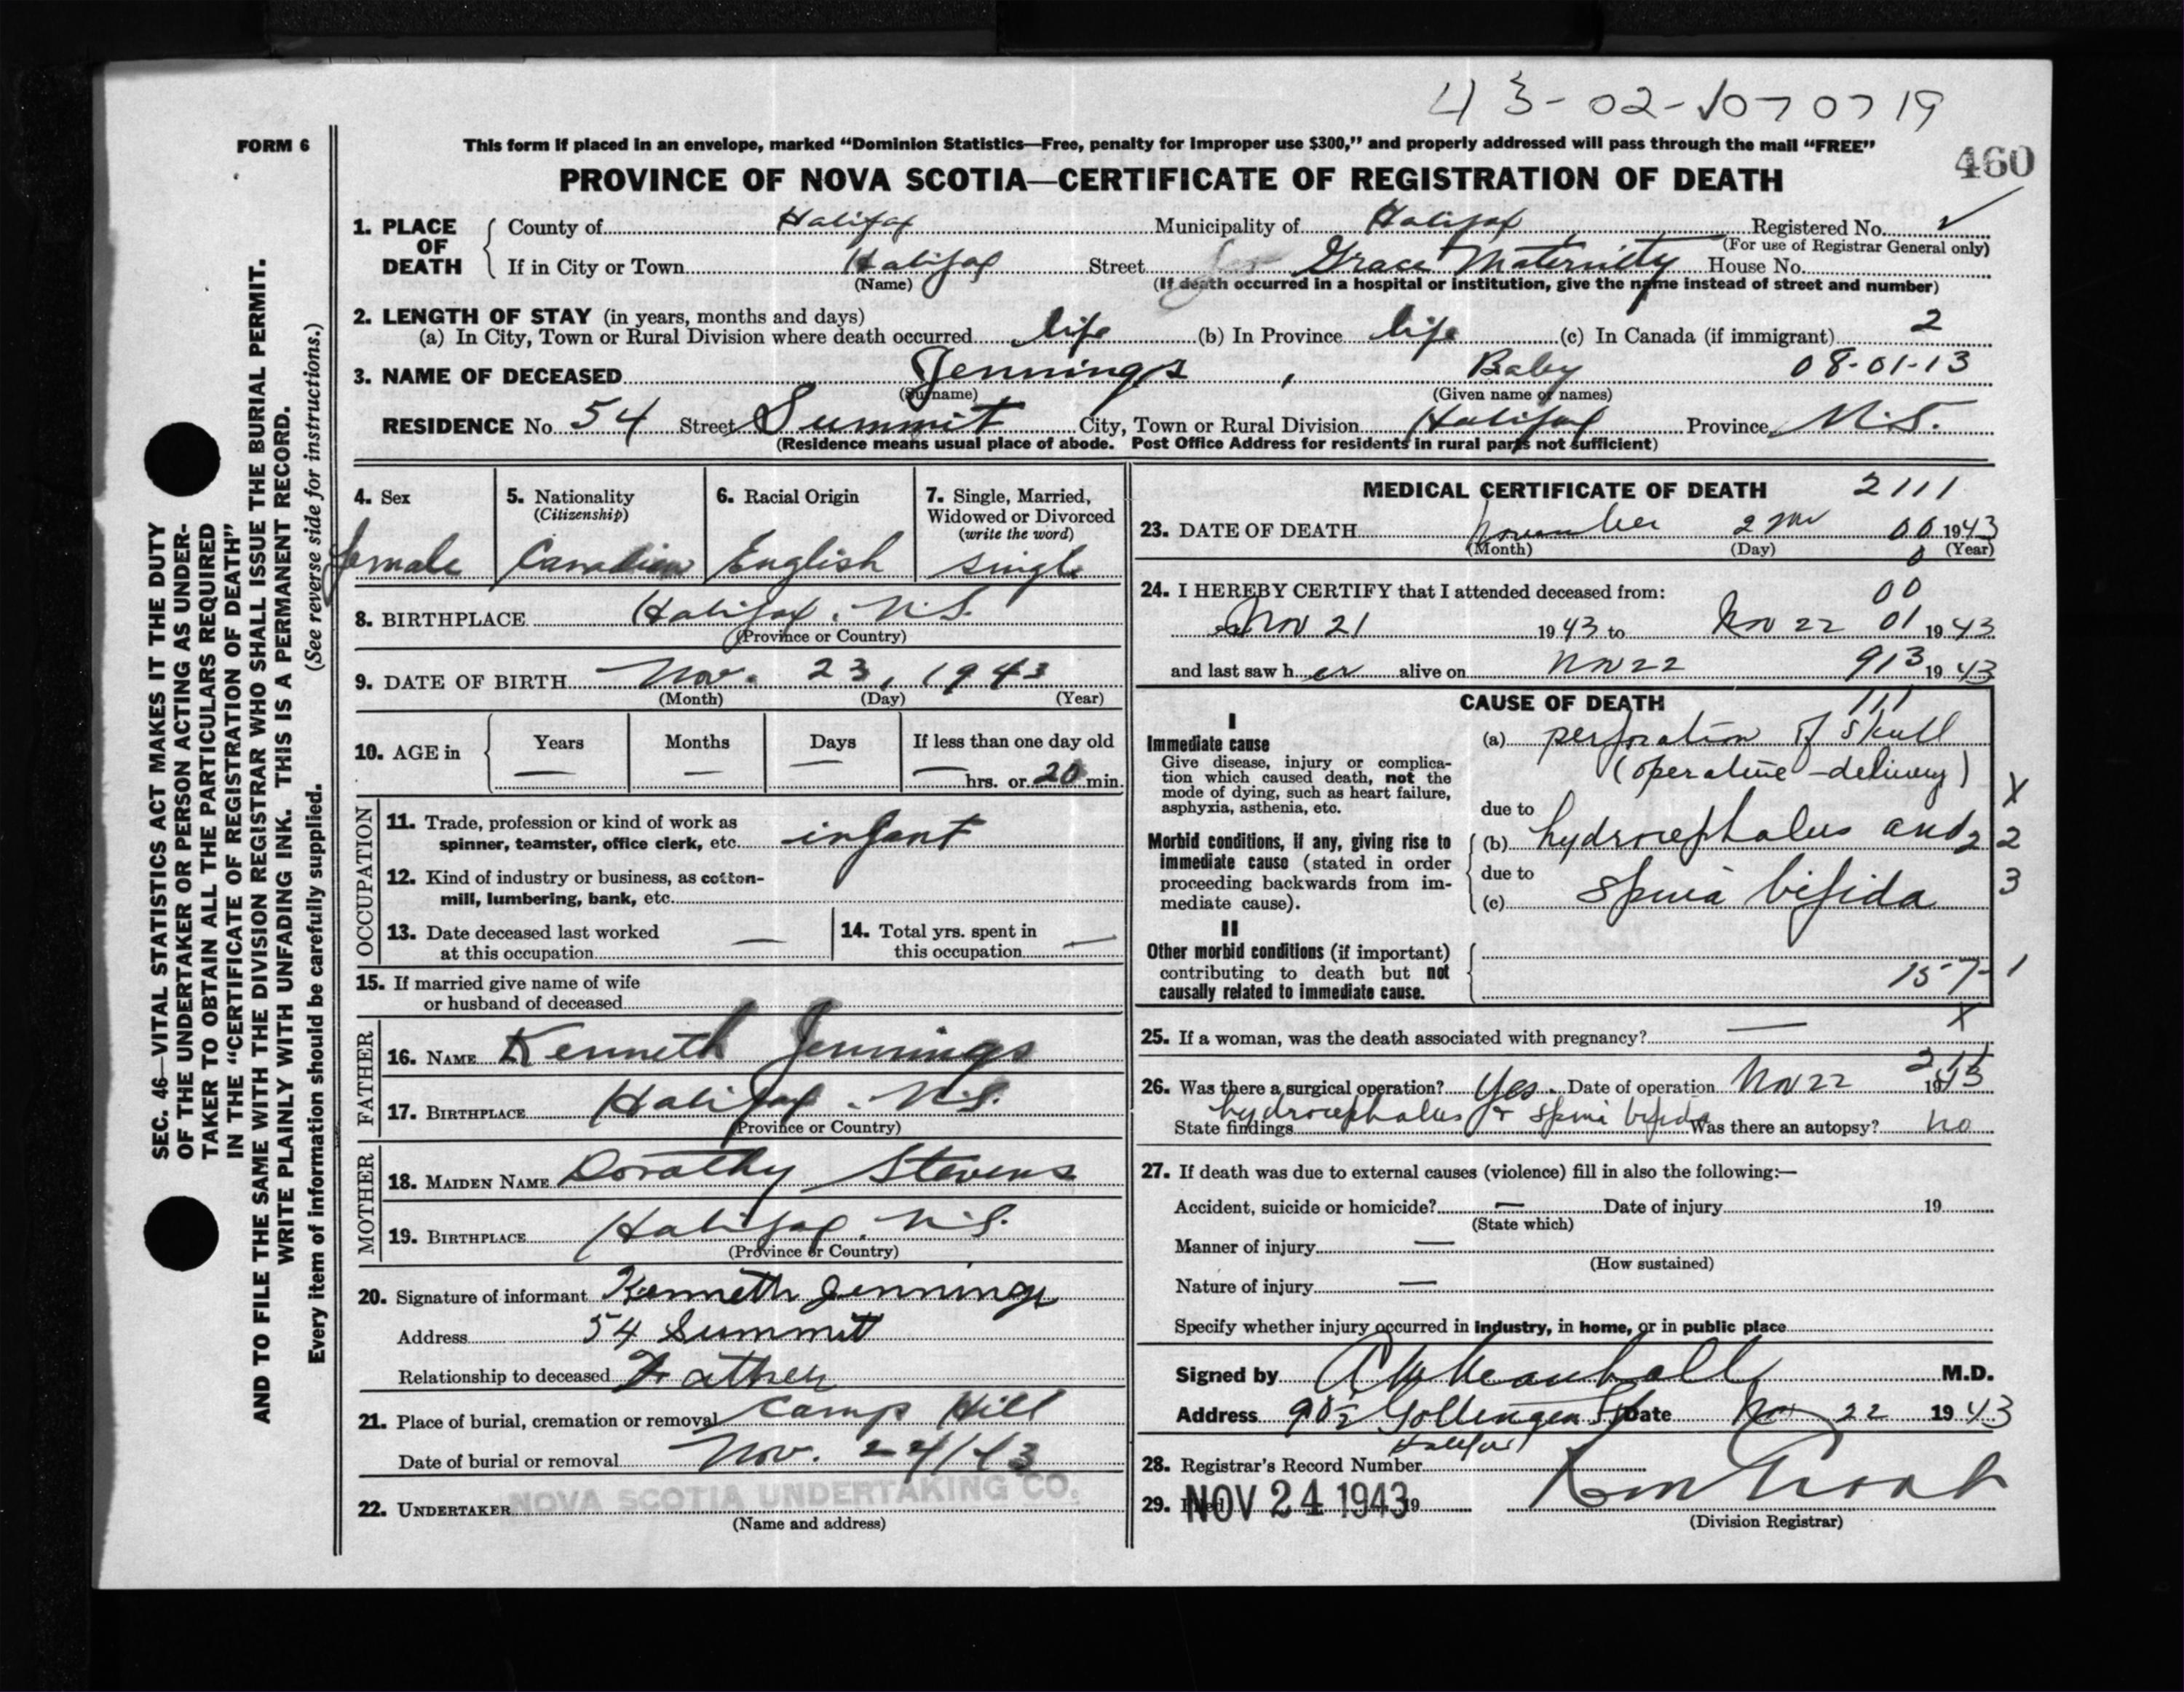 43-02-107077 19
FORM 6
This form if placed in an envelope, marked "Dominion Statistics—Free, penalty for improper use $300," and properly addressed will pass through the mail "FREE"
460
PROVINCE OF NOVA SCOTIA—CERTIFICATE OF REGISTRATION OF DEATH
1. PLACE OF DEATH
County of Halifax Municipality of Halifax Registered No. ✓
(For use of Registrar General only)
If in City or Town Halifax Street Grace Maternity House No.
(Name) (If death occurred in a hospital or institution, give the name instead of street and number)
2. LENGTH OF STAY (in years, months and days)
(a) In City, Town or Rural Division where death occurred life (b) In Province life (c) In Canada (if immigrant) 2
3. NAME OF DECEASED Jennings, Baby 08-01-13
(Surname) (Given name or names)
RESIDENCE No 54 Street Summit City, Town or Rural Division Halifax Province N.S.
(Residence means usual place of abode. Post Office Address for residents in rural parts not sufficient)
4. Sex 5. Nationality 6. Racial Origin 7. Single, Married,
(Citizenship) Widowed or Divorced
(write the word)
female Canadian English single
8. BIRTHPLACE Halifax. N.S.
(Province or Country)
9. DATE OF BIRTH Nov. 23, 1943
(Month) (Day) (Year)
10. AGE in Years Months Days If less than one day old
— — — — hrs. or 20 min.
OCCUPATION
11. Trade, profession or kind of work as
spinner, teamster, office clerk, etc. infant
12. Kind of industry or business, as cotton-
mill, lumbering, bank, etc.
13. Date deceased last worked
at this occupation —
14. Total yrs. spent in
this occupation —
15. If married give name of wife
or husband of deceased
FATHER
16. NAME Kenneth Jennings
17. BIRTHPLACE Halifax. N.S.
(Province or Country)
MOTHER
18. MAIDEN NAME Dorothy Stevens
19. BIRTHPLACE Halifax. N.S.
(Province or Country)
20. Signature of informant Kenneth Jennings
Address 54 Summit
Relationship to deceased Father
21. Place of burial, cremation or removal Camp Hill
Date of burial or removal Nov. 24/43
22. UNDERTAKER NOVA SCOTIA UNDERTAKING CO.
(Name and address)
MEDICAL CERTIFICATE OF DEATH 2111
23. DATE OF DEATH November 00 1943
(Month) (Day) (Year)
24. I HEREBY CERTIFY that I attended deceased from: 00
Nov 21 1943 to Nov 22 01 1943
and last saw her alive on Nov 22 913 1943
CAUSE OF DEATH 111
I
Immediate cause
Give disease, injury or complica-
tion which caused death, not the
mode of dying, such as heart failure,
asphyxia, asthenia, etc.
(a) perforation of skull
(operative - delivery)
X
due to
Morbid conditions, if any, giving rise to
immediate cause (stated in order
proceeding backwards from im-
mediate cause).
(b) hydrocephalus and 2 2
due to
(c) spina bifida 3
II
Other morbid conditions (if important)
contributing to death but not
causally related to immediate cause.
157-1
25. If a woman, was the death associated with pregnancy? — X
26. Was there a surgical operation? Yes. Date of operation Nov 22 1943
State findings hydrocephalus + spina bifida Was there an autopsy? no
27. If death was due to external causes (violence) fill in also the following:—
Accident, suicide or homicide? — Date of injury 19
(State which)
Manner of injury —
(How sustained)
Nature of injury —
Specify whether injury occurred in industry, in home, or in public place
Signed by M.D.
Address Gottingen St Date Nov 22 1943
Halifax
28. Registrar's Record Number
29. Filed NOV 24 1943 19
(Division Registrar)
SEC. 46—VITAL STATISTICS ACT MAKES IT THE DUTY
OF THE UNDERTAKER OR PERSON ACTING AS UNDER-
TAKER TO OBTAIN ALL THE PARTICULARS REQUIRED
IN THE "CERTIFICATE OF REGISTRATION OF DEATH"
AND TO FILE THE SAME WITH THE DIVISION REGISTRAR WHO SHALL ISSUE THE BURIAL PERMIT.
WRITE PLAINLY WITH UNFADING INK. THIS IS A PERMANENT RECORD.
Every item of information should be carefully supplied. (See reverse side for instructions.)